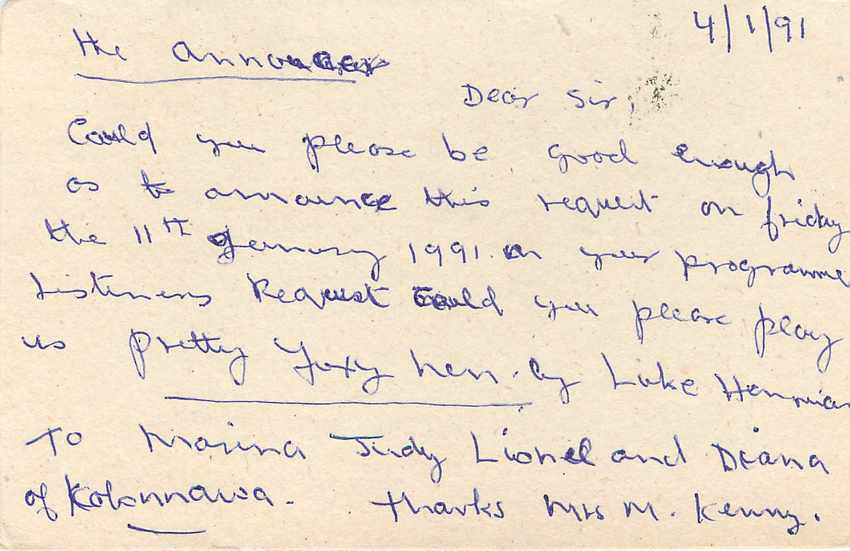 4/1/91
the announcer
Dear Sir,
Could you please be good enough
as to announce this request on friday
the 11TH January 1991. on your programme
Listeners Request Could you please play
us pretty Foxy hen. by Luke
To Marina Judy Lionel and Diana
of Kolonnawa. thanks Mrs M. Kenny.